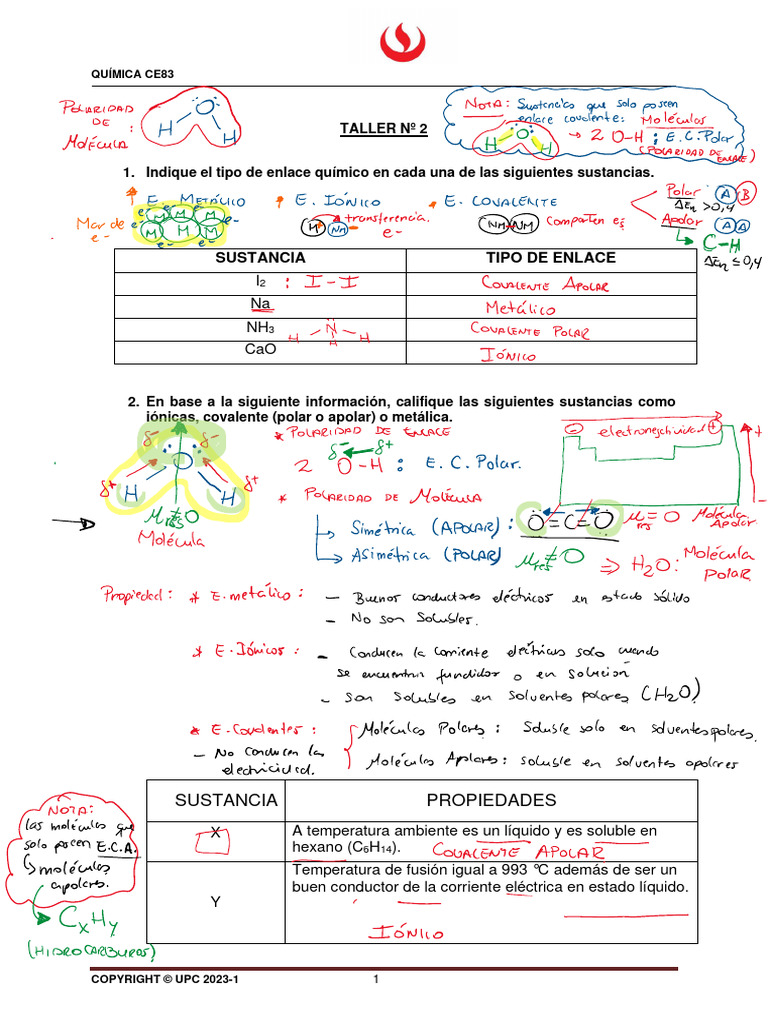 QUÍMICA CE83
POLARIDAD
DE :
MOLÉCULA
H O H
NOTA: Sustancias que solo poseen
enlace covalente: Moléculas
H O H → 2 O-H : E.C. Polar
(POLARIDAD DE ENLACE)
TALLER Nº 2
1. Indique el tipo de enlace químico en cada una de las siguientes sustancias.
E. METÁLICO
E. IÓNICO
E. COVALENTE
Polar A B
ΔEn > 0,4
Apolar A A
C-H
ΔEn ≤ 0,4
Mar de
e-
e- e- e- e-
M M M
M M M
e- e-
M NM
transferencia.
e-
NM NM
Comparten es
SUSTANCIA TIPO DE ENLACE
I2 : I - I COVALENTE APOLAR
Na Metálico
NH3 H N H H COVALENTE POLAR
CaO IÓNICO
2. En base a la siguiente información, califique las siguientes sustancias como
iónicas, covalente (polar o apolar) o metálica.
δ- δ-
O
δ+ H H δ+
μres ≠ O
Molécula
* POLARIDAD DE ENLACE
δ- δ+
2 O-H : E.C. Polar.
- electronegatividad +
+
-
* POLARIDAD DE MOLÉCULA
↳ Simétrica (APOLAR) : O=C=O μres = O Molécula Apolar
↳ Asimétrica (POLAR) μres ≠ O ⇒ H2O: Molécula POLAR
Propiedad: * E. metálico : - Buenos conductores eléctricos en estado sólido
- No son Solubles.
* E. Iónicos : - Conducen la corriente eléctrica solo cuando
se encuentran fundidos o en solución
- Son Solubles en solventes polares (H2O)
* E. Covalentes : Moléculas Polares : Soluble solo en solventes polares.
- No conducen la
electricidad.
Moléculas Apolares : soluble en solventes apolares
NOTA:
las moléculas que
solo poseen E.C.A.
↳ moléculas
apolares.
CxHy
(HIDROCARBUROS)
SUSTANCIA PROPIEDADES
X A temperatura ambiente es un líquido y es soluble en
hexano (C6H14). COVALENTE APOLAR
Y Temperatura de fusión igual a 993 °C además de ser un
buen conductor de la corriente eléctrica en estado líquido.
IÓNICO
COPYRIGHT © UPC 2023-1 1